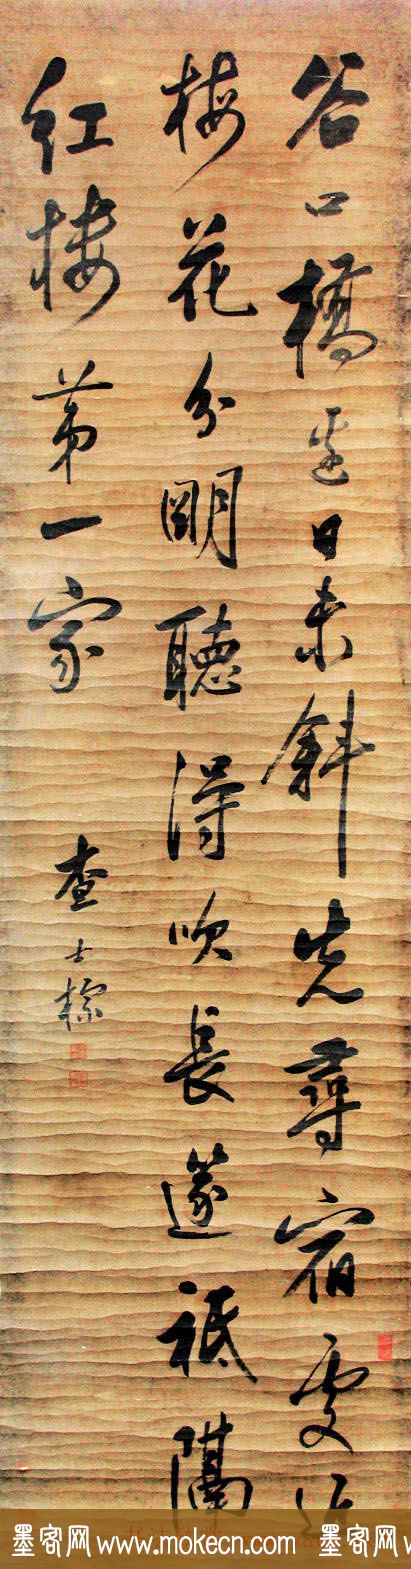 谷口橋邊日未斜先尋宿處
梅花分朙聽得吹長篴祗隔
紅樓第一家
查士標
墨客网 www.mokecn.com 墨客网 ww